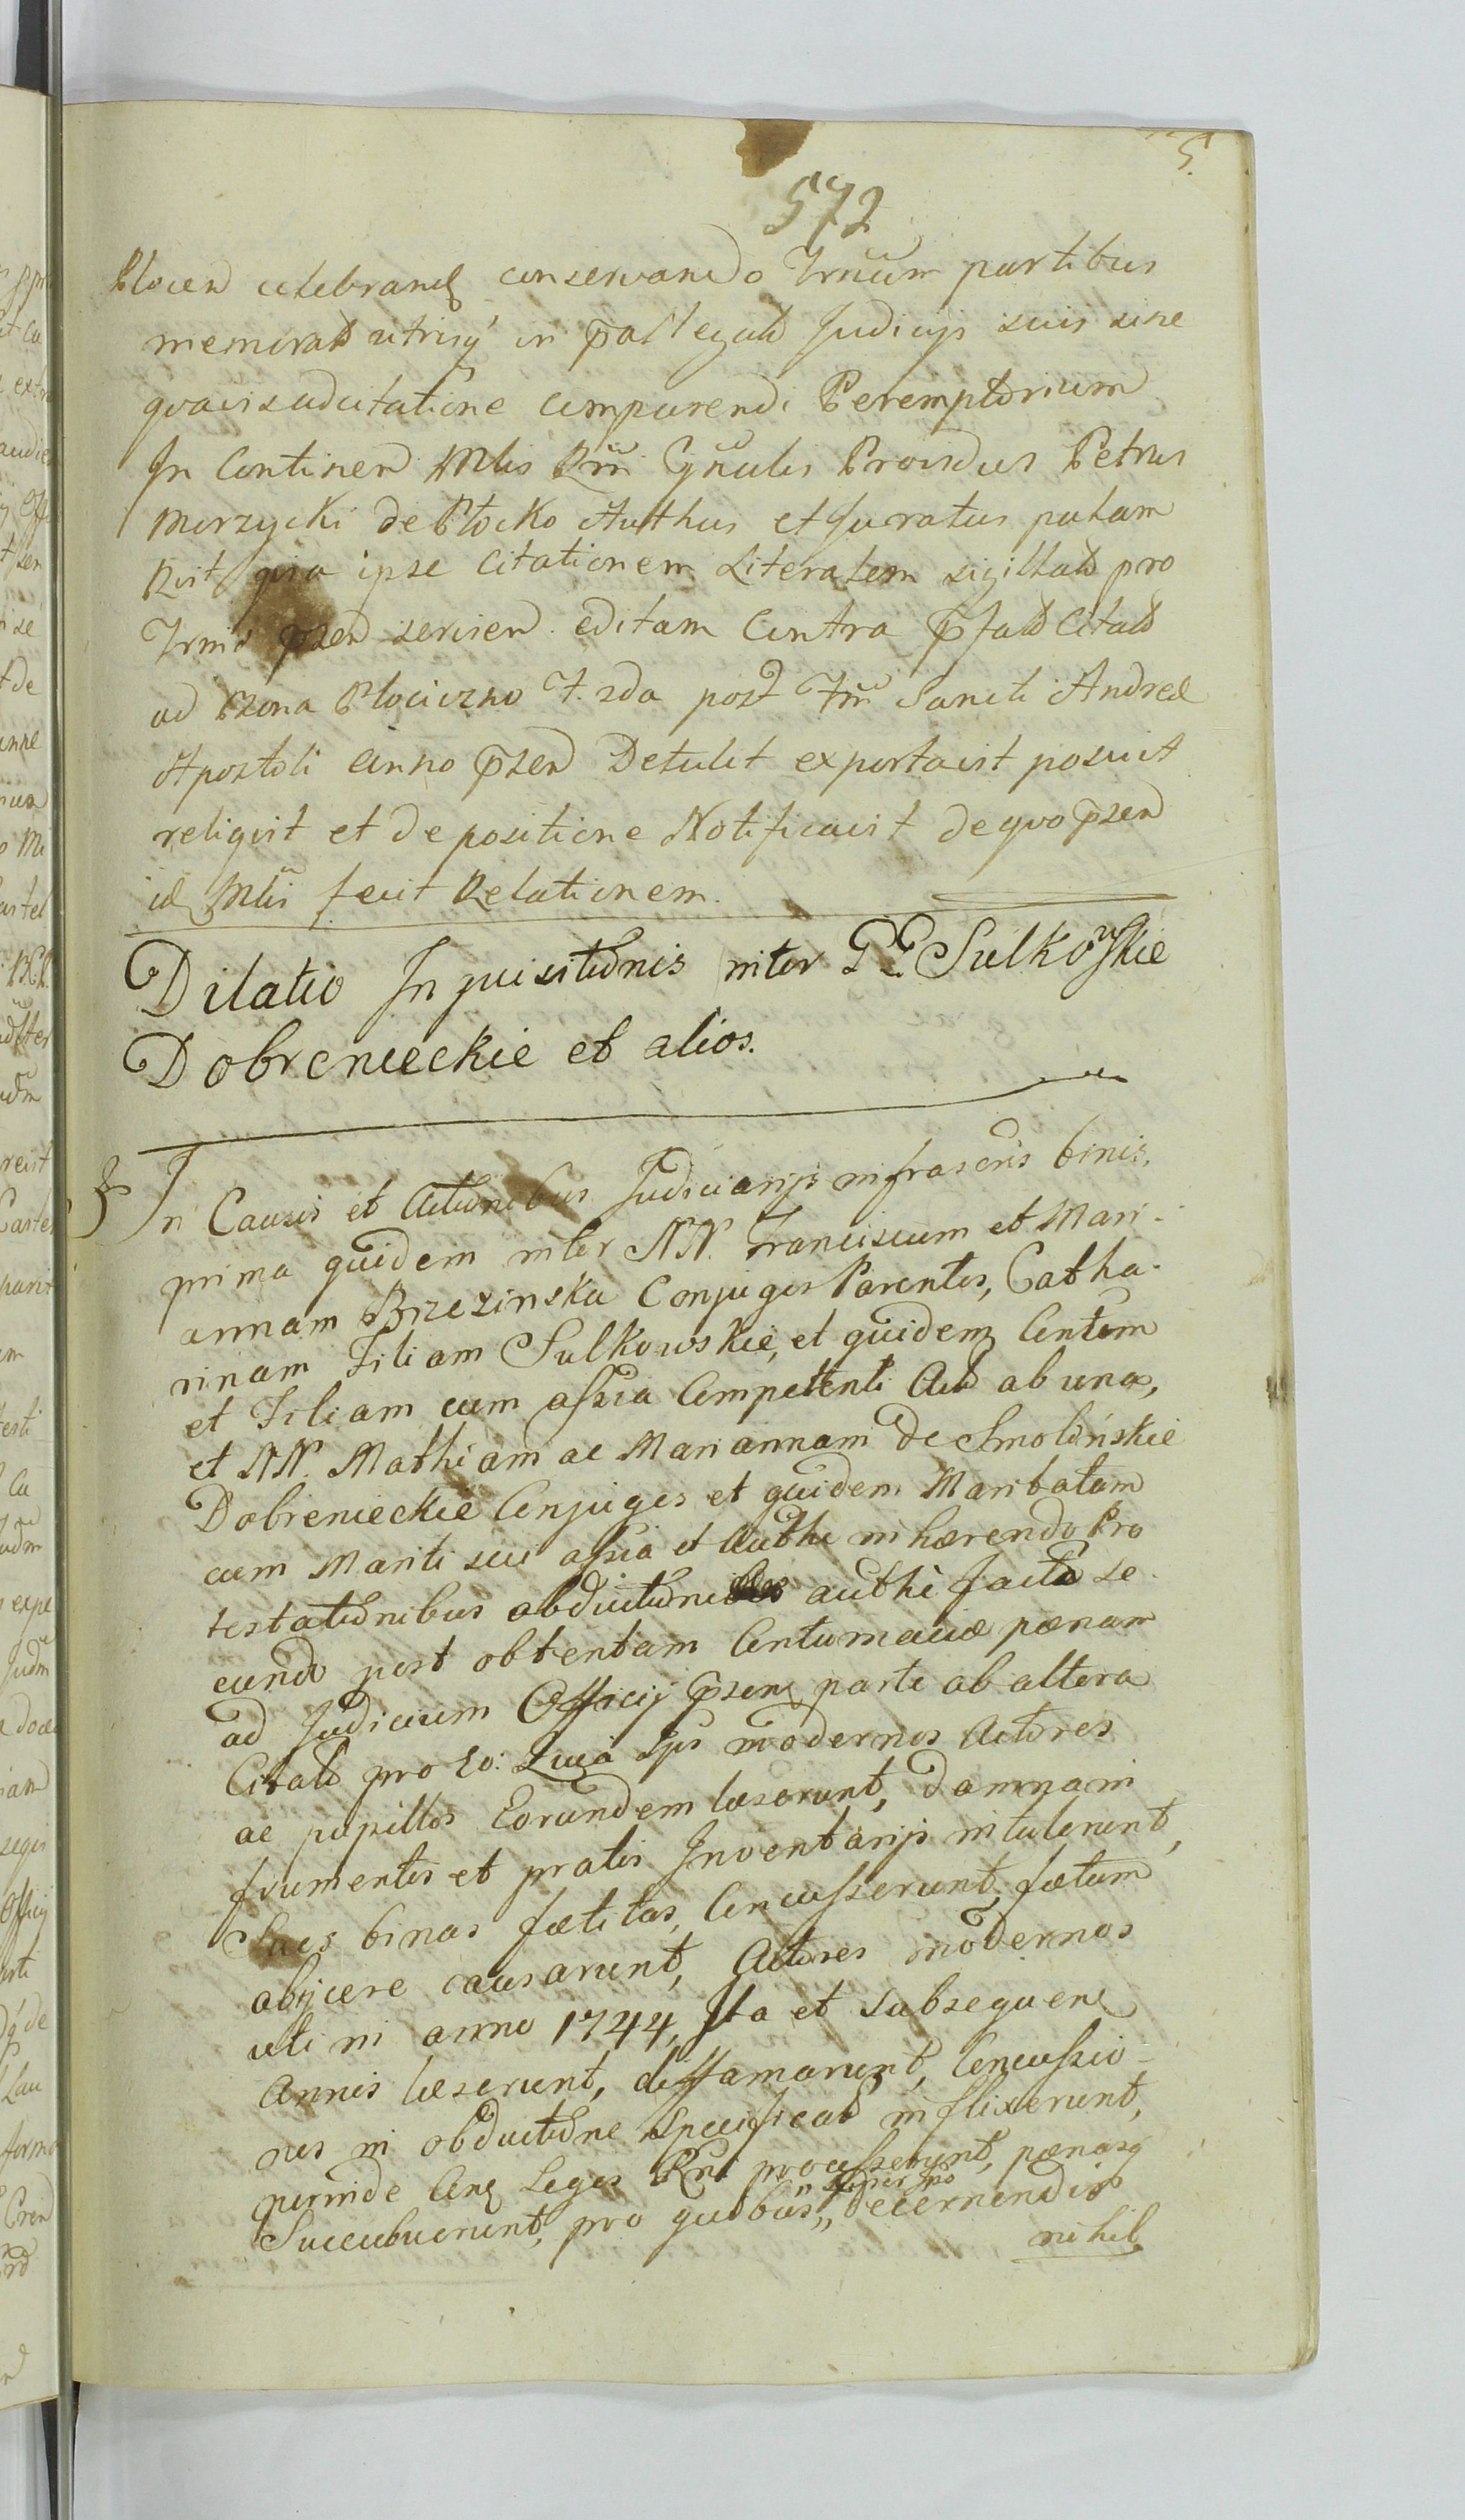 572
5.
Plocen celebrand conservando Trnum partibus
memorat utrisq in pat legali Judicijs suis sine
qvavis adcitatione comparendi Peremptorium
In Continen Mlis Rni Gnalis Providus Petrus
Morzycki de Plocko Authus et Juratus palam
Rvit qvia ipse Citationem Literalem sigillat pro
Trmo psen servien editam Contra pfat Citat
ad bona Plociczno f. 2da post fm Sancti Andreæ
Apostoli anno psen Detulit exportavit posuit
reliqvit et de positione Notificavit de qvo psen
id Mlis fecit Relationem.
Dilatio Inquisitionis inter GG Sulkowskie
Dobrenieckie et alios.
In Causis et Actionibus Judiciarijs infrascris binis,
prima quidem inter NN. Franciscum et Mari-
annam Brzezinska Conjuges Parentes, Catha-
rinam Filiam Sulkowskie, et quidem Contem
et Filiam cum assia Competenti Act ab una,
et NN. Mathiam ac Mariannam de Smolinskie
Dobrenieckie Conjuges et quidem Maritatam
cum Mariti sui assia et Authe inhærendo Pro
testationibus obductionibus authe factis se-
cundo post obtentam Contumaciæ pænam
ad Judicium Officij psens parte ab altera
Citat pro eo: Quia Ips modernos Actores
ac pupillos Eorundem læserunt, damna in
frumentis et pratis Inventarijs intulerunt,
Sues binas fætitas, Concusserunt, fætum
abijcere causarunt, Actores modernos
uti in anno 1744, Ita et subsequen
Annis læserunt, diffamarunt, Concussio-
nes in obductione specificat inflixerunt,
perinde Con Leges Rni processerunt, pænasq
Succubuerunt, pro quibus,, super ipso decernendis
nihil